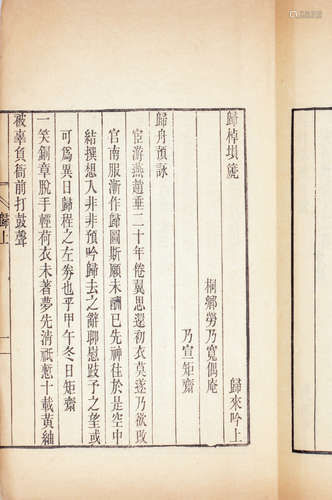 歸棹塤箎
歸來吟上
桐鄉勞乃寬偶庵
乃宣矩齋
歸舟預詠
宦游燕趙垂二十年倦翼思還初衣莫遂乃欲改
官南服漸作歸圖斯願未酬已先神往於是空中
結撰想入非非預吟歸去之辭聊慰跂予之望或
可爲異日歸程之左券也乎甲午冬日矩齋
一笑銅章脫手輕荷衣未著夢先清祇慙十載黃紬
被辜負衙前打鼓聲
歸上
一